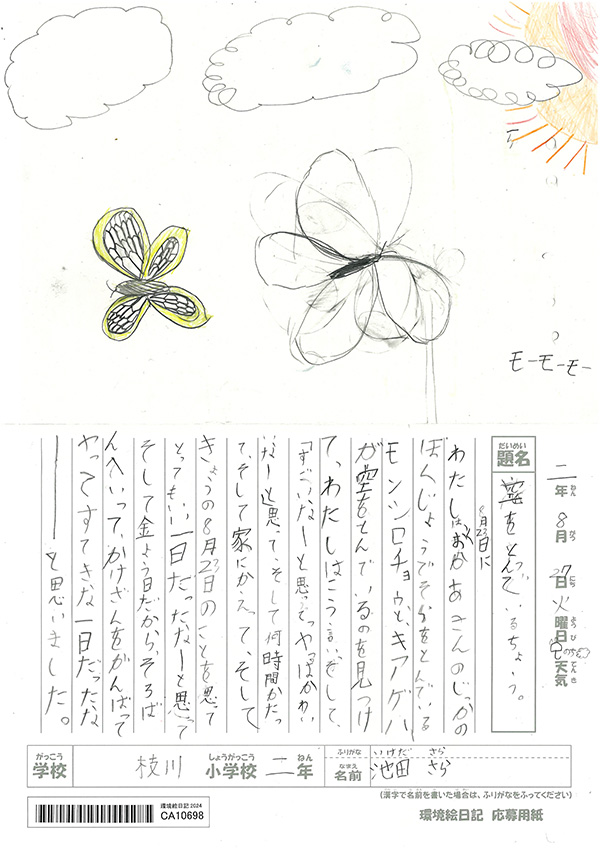 モーモーモー
二年 8月 27日 火曜日 天気
ねん がつ にち ようび てんき
だいめい
題名 空をとんでいるちょう。
8月23日に
わたしは、おかあさんのじっかの
ぼんじょうでそらをとんでいる
モンシロチョウと、キアゲハ
が空をとんでいるのを見つけ
て、わたしはこう言いました。
「すごいなーと思って、やっぱかわい
いなーと思って、そして何時間かたっ
て、そして家にかえって、そして
きょうの8月23日のことを思って
とってもいい一日だったなーと思って
そして金よう日だから、そろば
んへいって、かけざんをがんばって
やってすてきな一日だったな
ーーと思いました。
がっこう しょうがっこう ねん
学校 枝川 小学校 二年
ふりがな いけだ さら
なまえ
名前 池田 さら
(漢字で名前を書いた場合は、ふりがなをふってください)
環境絵日記 2024
CA10698
環境絵日記 応募用紙